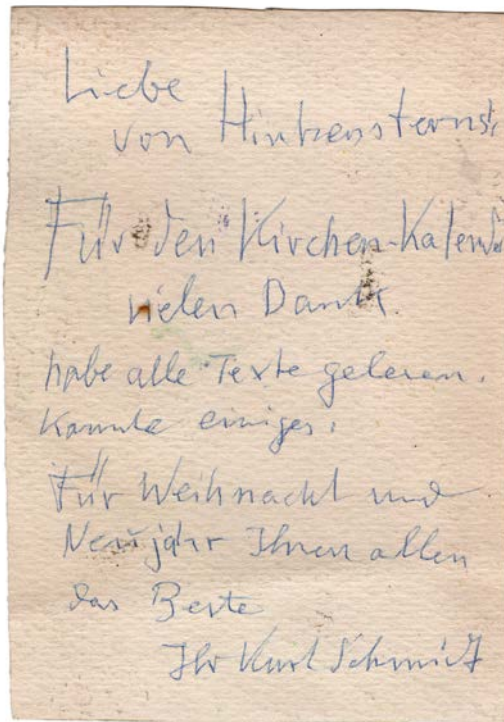 Liebe
von Hintzensterns,
Für den Kirchen-Kalender
vielen Dank
habe alle Texte gelesen.
Kannte einiges.
Für Weihnacht und
Neujahr Ihnen allen
das Beste
Ihr Kurt Schmidt